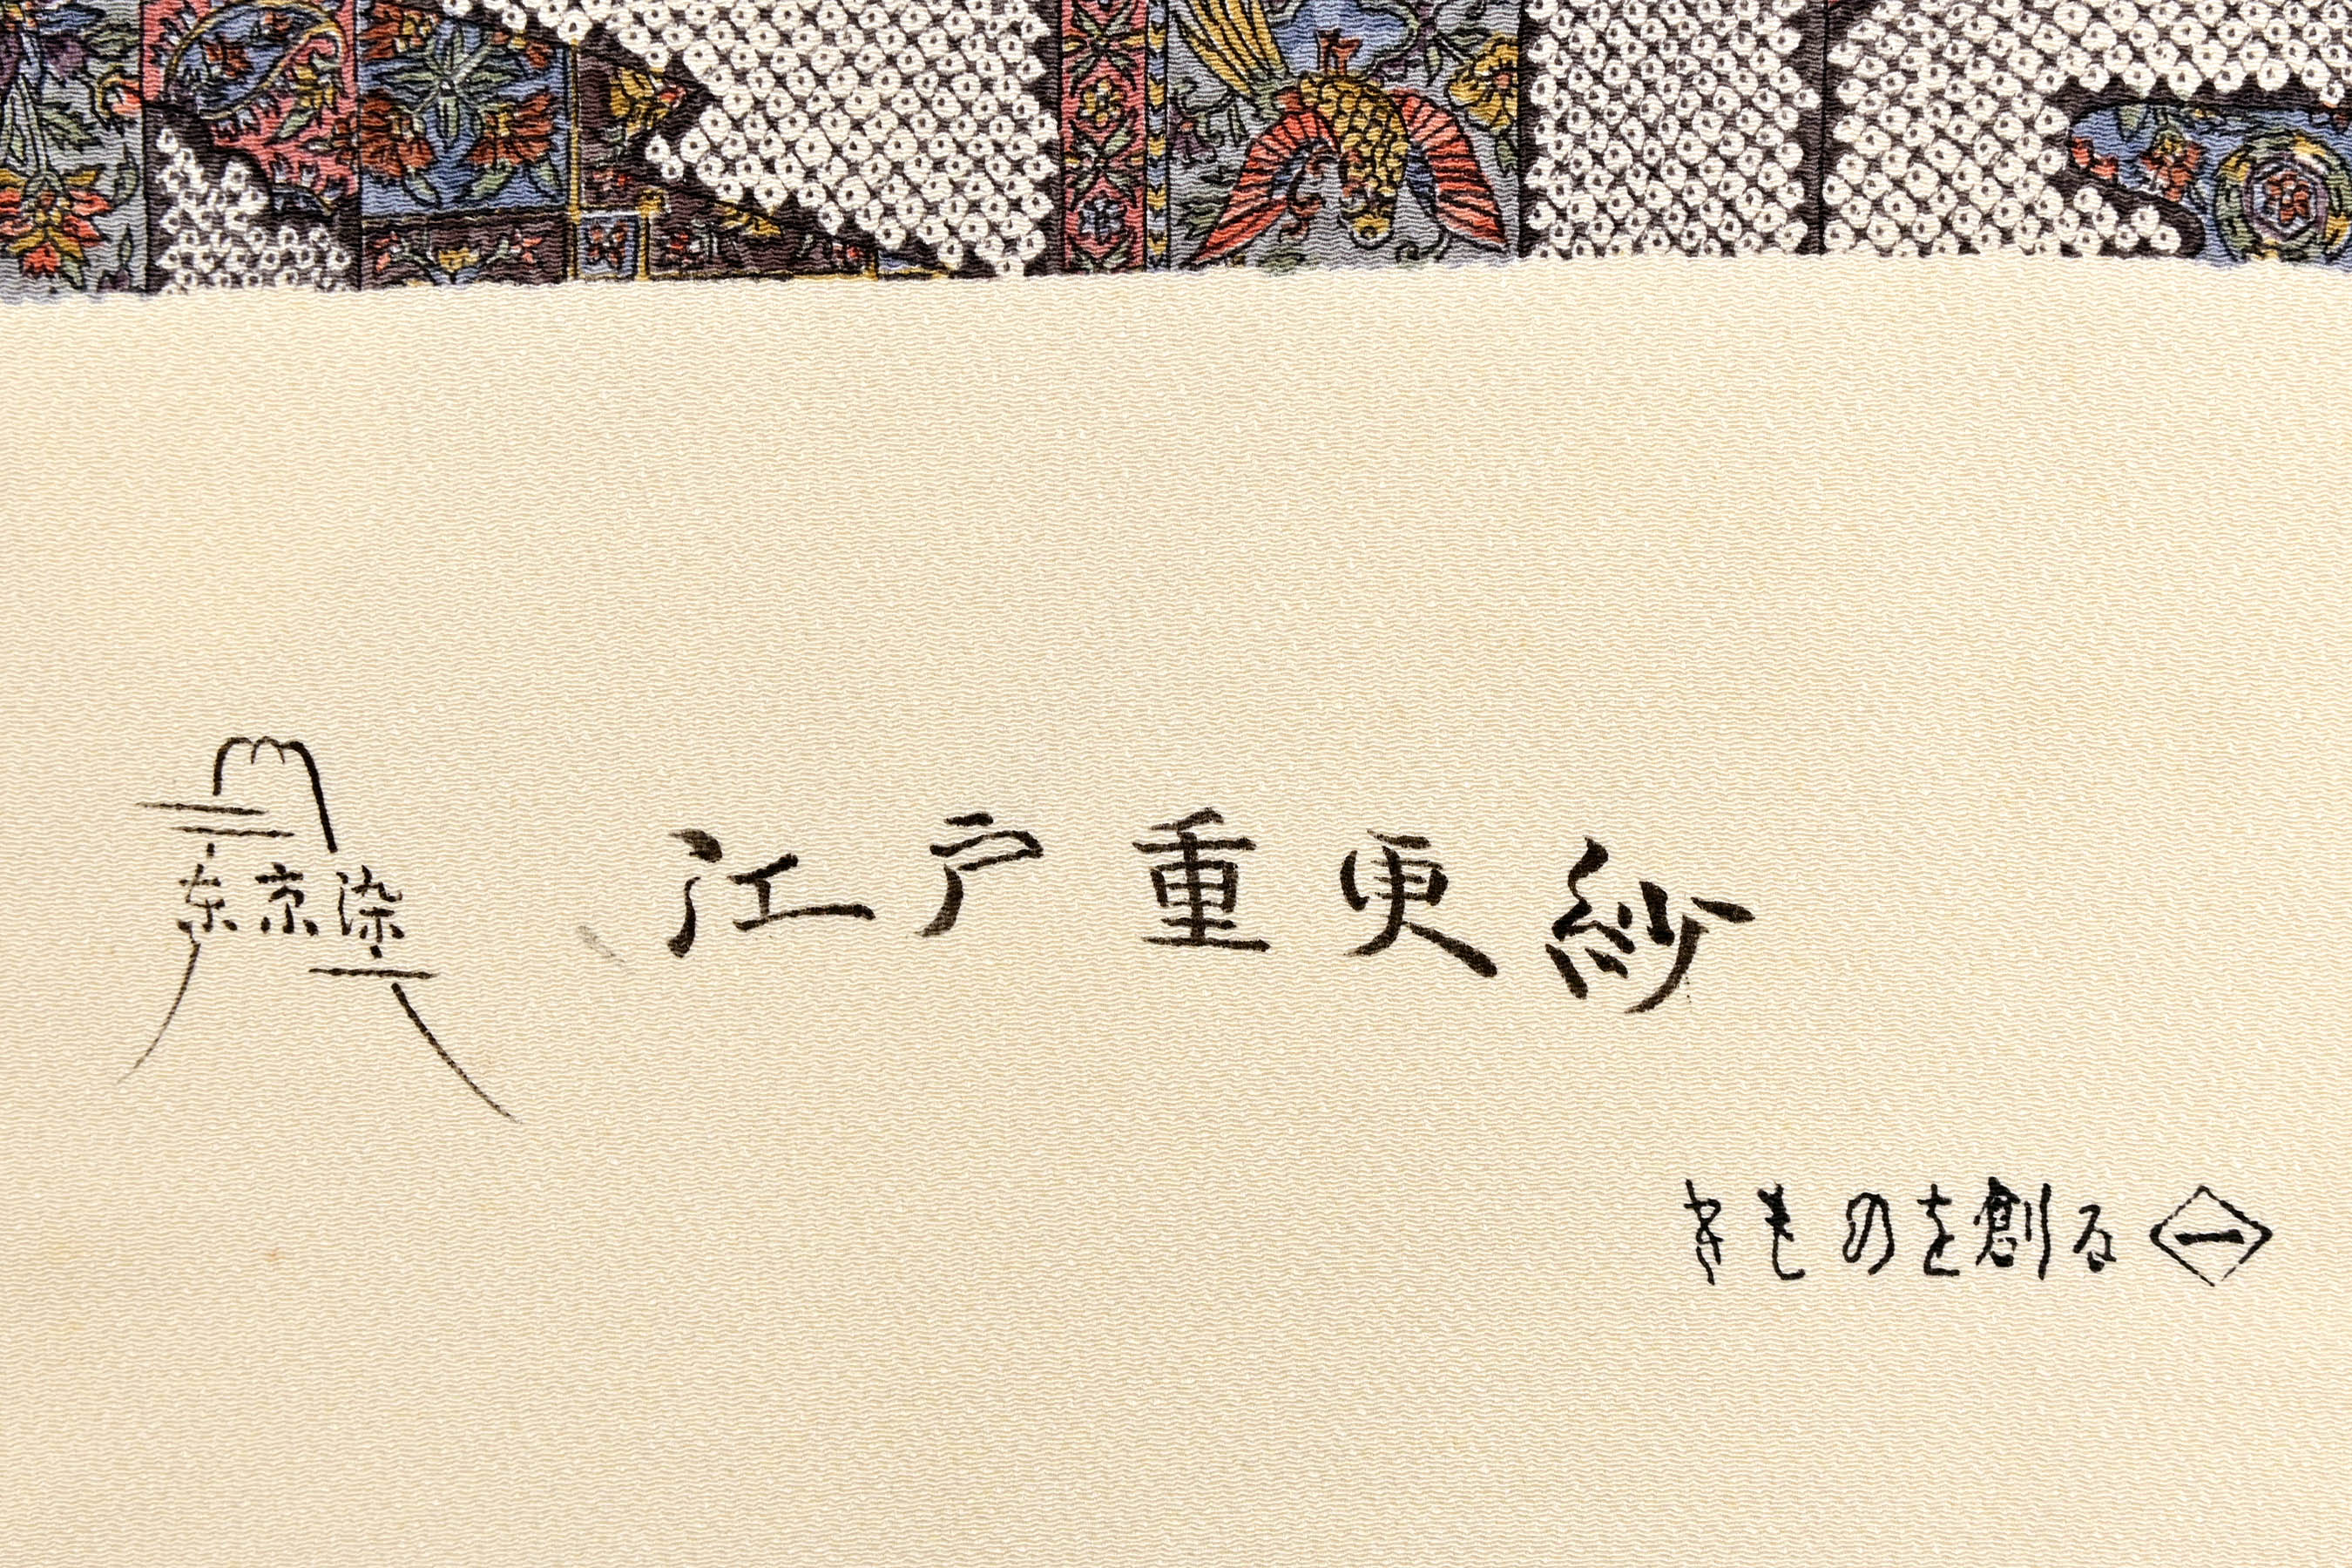 东京染
江戸重更紗
きものを創る 一